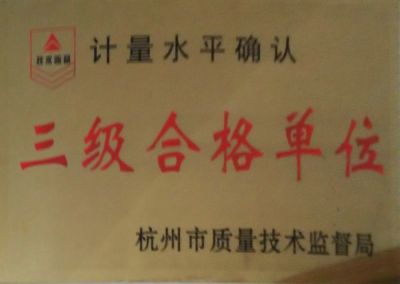 计量水平确认
三级合格单位
杭州市质量技术监督局